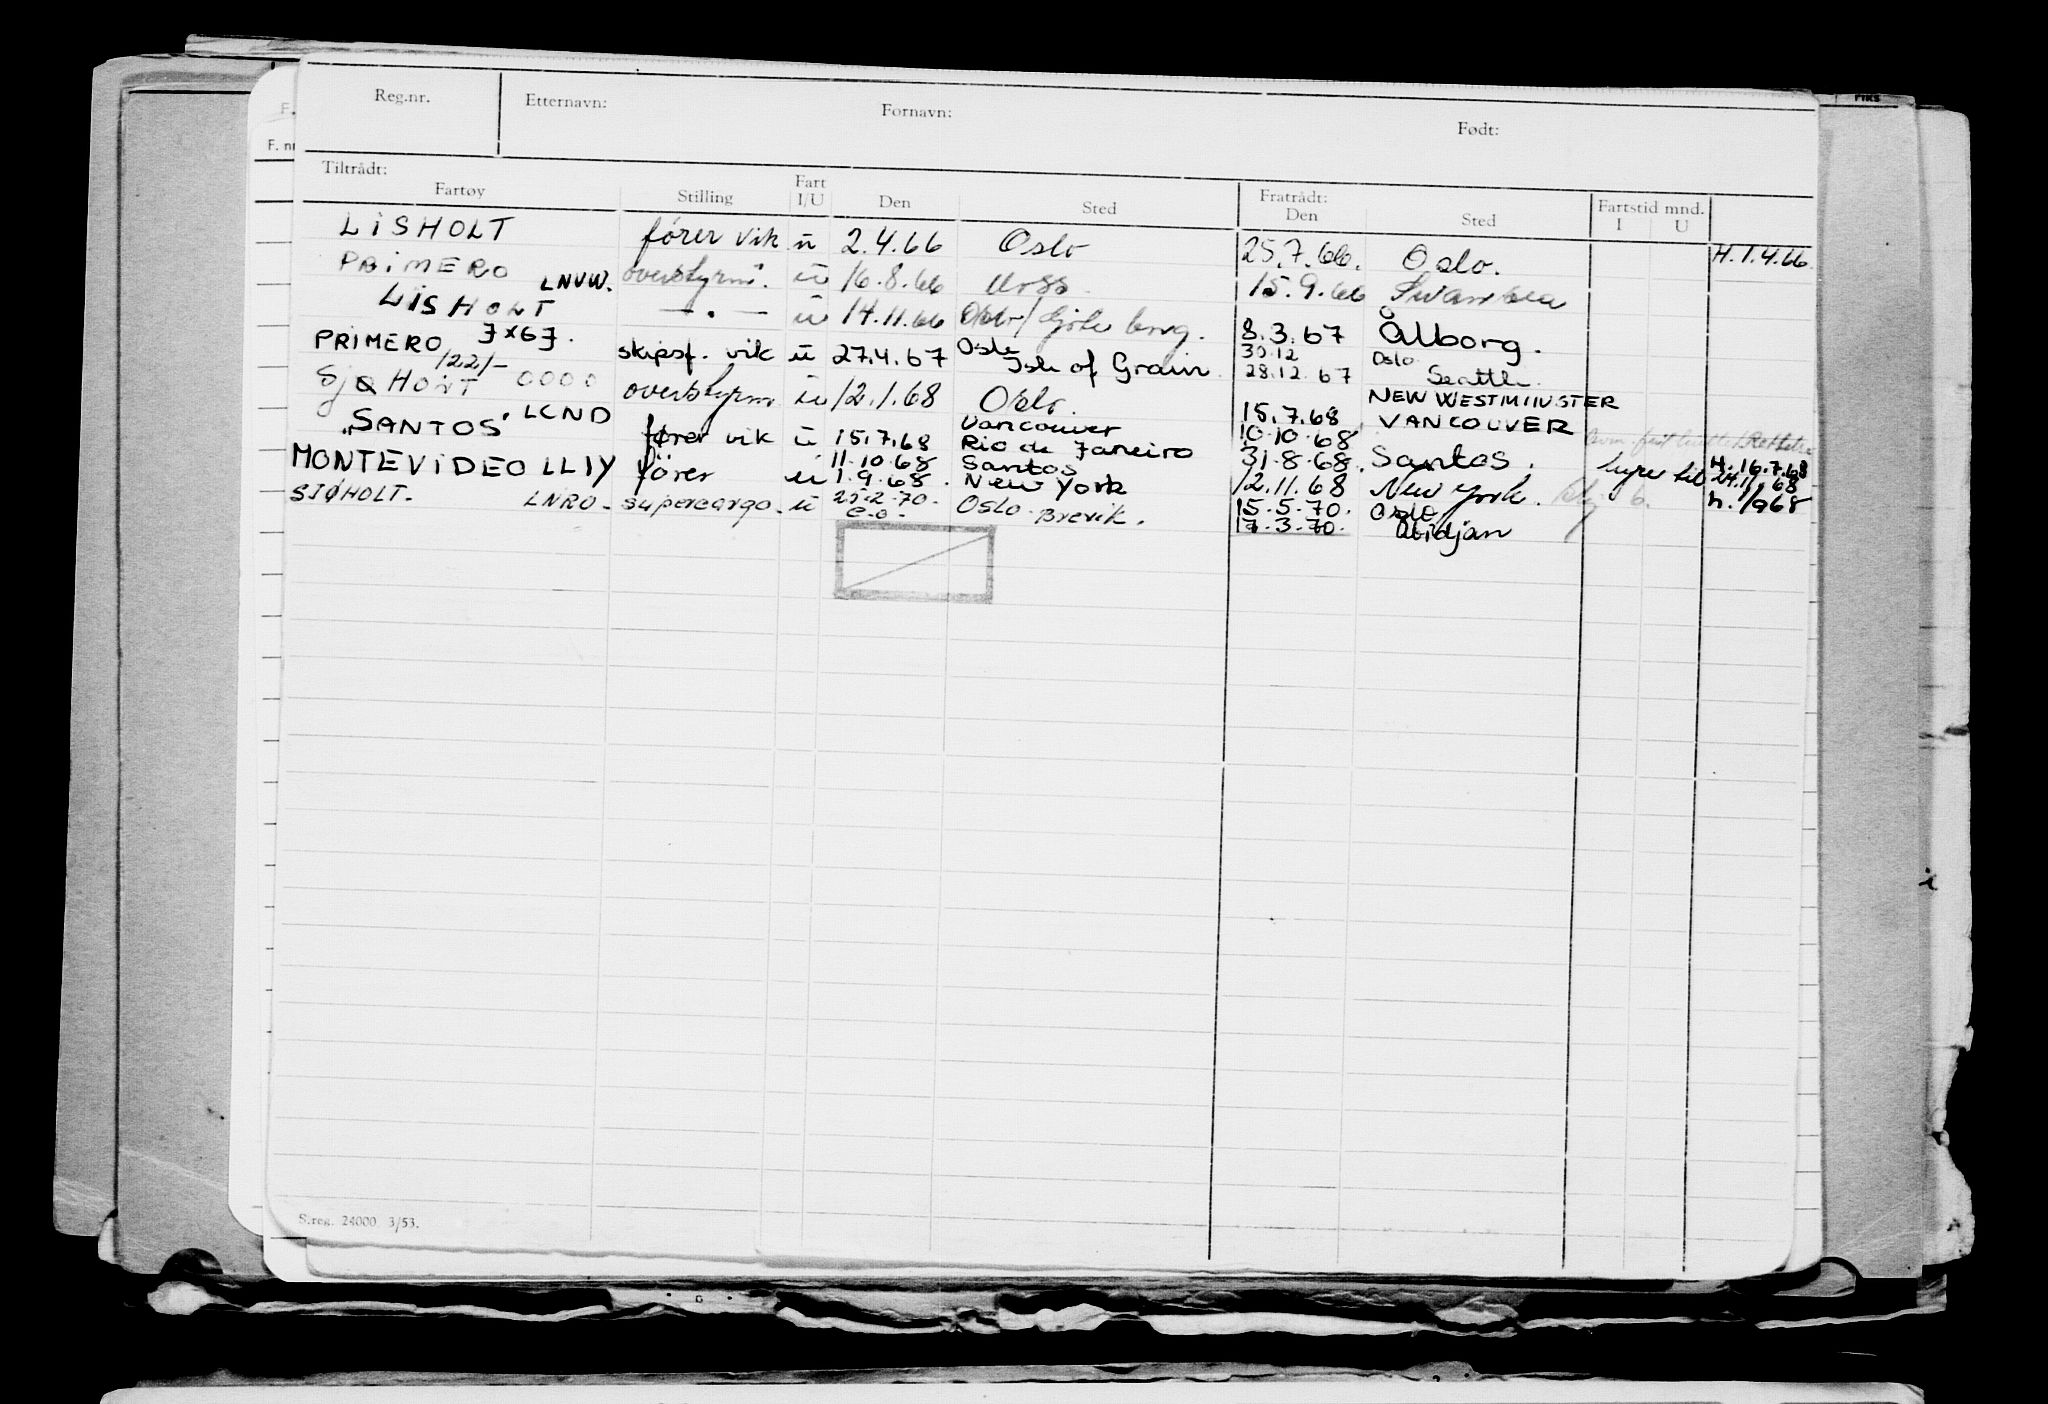 Reg.nr. Etternavn: Fornavn: Født:
Tiltrådt: Fratrådt: Fartstid mnd.
Fartøy Stilling Fart I/U Den Sted Den Sted I U
LISHOLT fører vik u 2.4.66 Oslo 25.7.66. Oslo. H.1.4.66
PRIMERO LNVW. overstyrm. u 16.8.66 Moss 15.9.66 Swansea
LISHOLT — . — u 14.11.66 Oslo/ 8.3.67 Ålborg.
PRIMERO JX6J. skipsf. vik u 27.4.67 Oslo Isle of Grain 30.12 Oslo 28.12.67 Seattle
122/-
SjøHOLT 0000 overstyrm u 12.1.68 Oslo. 15.7.68 NEW WESTMINSTER VANCOUVER
"SANTOS" LCND fører vik u 15.7.68 Vancouver 10.10.68 Santos. H.16.7.68
11.10.68 Rio de Janeiro 31.8.68.
MONTEVIDEO LLIY fører u 1.9.68. Santos New York 12.11.68 New York. h. 1/968
SJØHOLT. LNRO. supercargo. u 25.2.70. Oslo. Brevik. 15.5.70. Oslo
c.o. 17.3.70. Abidjan
S.reg. 24000 3/53.